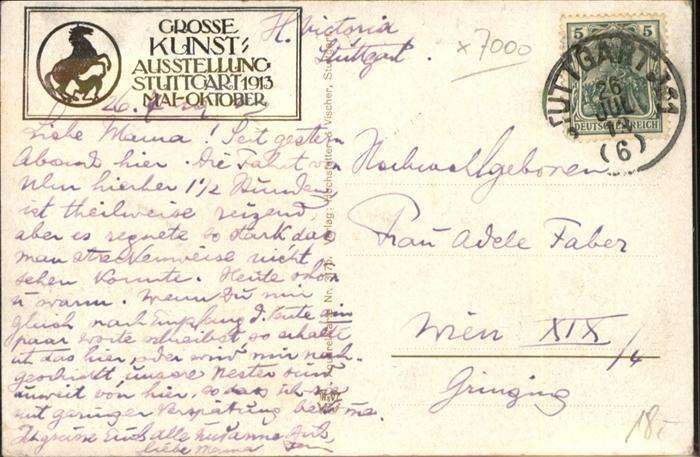 GROSSE
KUNST-
AUSSTELLUNG
STUTTGART 1913
MAI-OKTOBER
H. Victoria
Stuttgart
x 7000
5 5
DEUTSCHES REICH
STUTTGART
26
JUL
13
(6)
26.
Liebe Mama! Seit gestern
Abend hier. Die Fahrt von
Ulm hierher 1½ Stunden
ist theilweise reizend,
aber es regnete so stark das
man streckenweise nicht
sehen konnte. Heute schön
u warm. Wenn Du mir
gleich nach Empfang d. Karte ein
paar Worte schreibst so erhalte
ich das hier, oder wird mir nach-
geschickt, unsere
unweit von hier, so dass ich sie
mit geringer Verspätung bekomme.
Ich grüsse Euch alle zusammen
liebe Mama
Hochwohlgeboren
Frau Adele Faber
Wien XIX/4
Grinzing
18.-